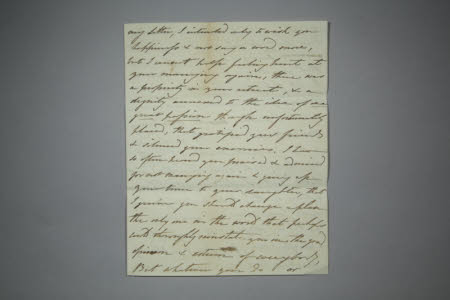 my letter, I intended only to wish you
happiness & not say a word more,
but I cannot help feeling hurt at
your marrying again, there was
a propriety in your retreat, & a
dignity annexed to the idea of one
great passion though unfortunately
placed, that gratified your friends
& silenced your enemies. I have
so often heard you praised & admired
for not marrying again & giving up
your time to your daughter, that
I grieve you should change a plan
the only one in the world that perhaps
could thoroughly reinstate you in the good
opinion & esteem of everybody.
But whatever you do or